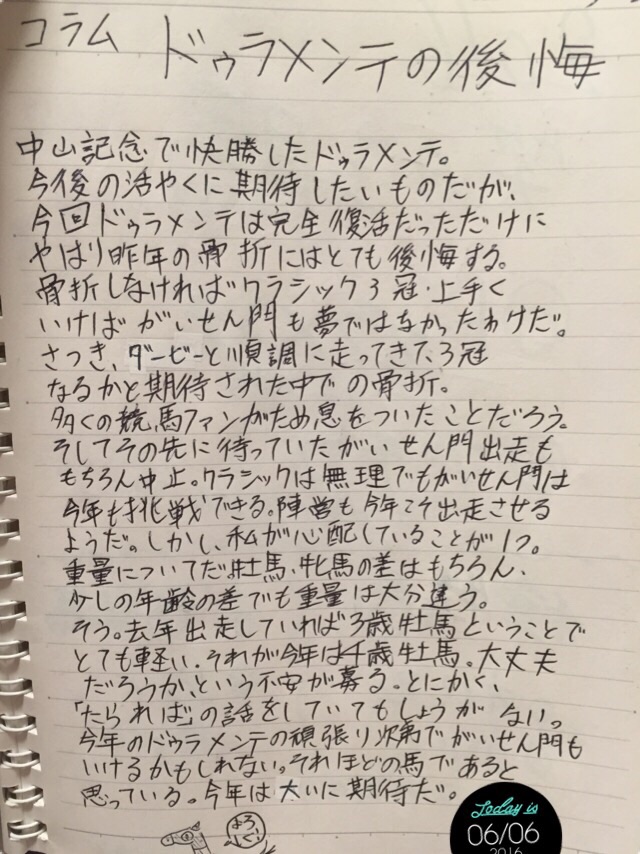 コラム ドゥラメンテの後悔
中山記念で快勝したドゥラメンテ。
今後の活やくに期待したいものだが、
今回ドゥラメンテは完全復活だっただけに
やはり昨年の骨折にはとても後悔する。
骨折しなければクラシック3冠・上手く
いけばがいせん門も夢ではなかったわけだ。
さつき、ダービーと順調に走ってきて、3冠
なるかと期待された中での骨折。
多くの競馬ファンがため息をついたことだろう。
そしてその先に待っていたがいせん門出走も
もちろん中止。クラシックは無理でもがいせん門は
今年も挑戦できる。陣営も今年こそ出走させる
ようだ。しかし、私が心配していることが1つ。
重量についてだ。牡馬、牝馬の差はもちろん、
少しの年齢の差でも重量は大分違う。
そう。去年出走していれば3歳牡馬ということで
とても軽い。それが今年は4歳牡馬。大丈夫
だろうか、という不安が募る。とにかく、
「たられば」の話をしていてもしょうがないっ。
今年のドゥラメンテの頑張り次第でがいせん門も
いけるかもしれない。それほどの馬であると
思っている。今年は大いに期待だ。
よろしく!
Today is
06/06
2016